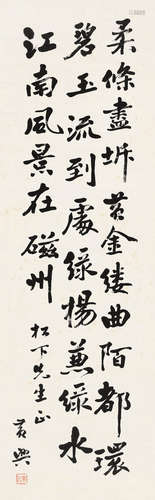 柔條盡坼黃金縷曲陌都環
碧玉流到處綠楊兼綠水
江南風景在磁州
松下先生正
黃興